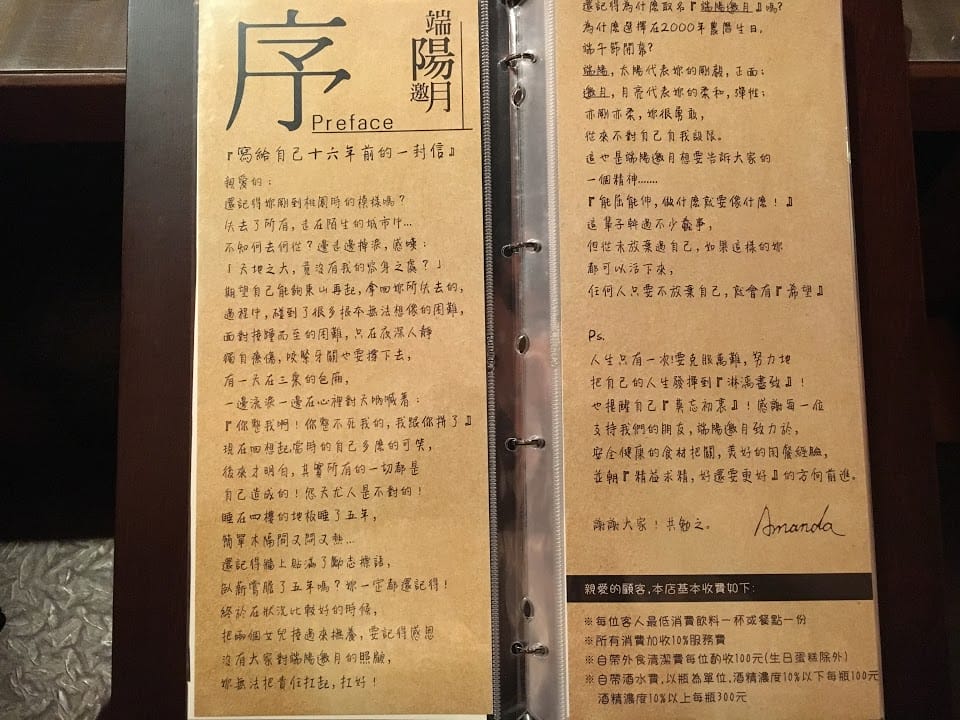 序
端陽邀月
Preface
『寫給自己十六年前的一封信』
親愛的：
還記得妳剛到桃園時的模樣嗎？
失去了所有，走在陌生的城市中...
不知何去何從？邊走邊掉淚，感嘆：
「天地之大，竟沒有我的容身之處？」
期望自己能夠東山再起，拿回妳所失去的，
過程中，碰到了很多根本無法想像的困難，
面對接踵而至的困難，只在夜深人靜
獨自療傷，咬緊牙關也要撐下去，
有一天在三槳的包廂，
一邊流淚一邊在心裡對天吶喊著：
『你整我啊！你整不死我的，我跟你拼了』
現在回想起當時的自己多麼的可笑，
後來才明白，其實所有的一切都是
自己造成的！怨天尤人是不對的！
睡在四樓的地板睡了五年，
簡單木隔間又悶又熱...
還記得牆上貼滿了勵志標語，
臥薪嘗膽了五年嗎？妳一定都還記得！
終於在狀況比較好的時候，
把兩個女兒接過來撫養，要記得感恩
沒有大家對端陽邀月的照顧，
妳無法把責任扛起，扛好！
還記得為什麼取名『端陽邀月』嗎？
為什麼選擇在2000年農曆生日，
端午節開幕？
端陽，太陽代表妳的剛毅，正面；
邀月，月亮代表妳的柔和，彈性；
亦剛亦柔，妳很勇敢，
從來不對自己自我設限。
這也是端陽邀月想要告訴大家的
一個精神.......
『能屈能伸，做什麼就要像什麼！』
這輩子幹過不少蠢事，
但從未放棄過自己，如果這樣的妳
都可以活下來，
任何人只要不放棄自己，就會有『希望』
Ps.
人生只有一次!要克服萬難，努力地
把自己的人生發揮到『淋漓盡致』！
也提醒自己『莫忘初衷』！感謝每一位
支持我們的朋友，端陽邀月致力於，
安全健康的食材把關，美好的用餐經驗，
並朝『精益求精，好還要更好』的方向前進。
謝謝大家！共勉之。 Amanda
親愛的顧客，本店基本收費如下：
※每位客人最低消費飲料一杯或餐點一份
※所有消費加收10%服務費
※自帶外食清潔費每位酌收100元(生日蛋糕除外)
※自帶酒水費，以瓶為單位，酒精濃度10%以下每瓶100元
酒精濃度10%以上每瓶300元